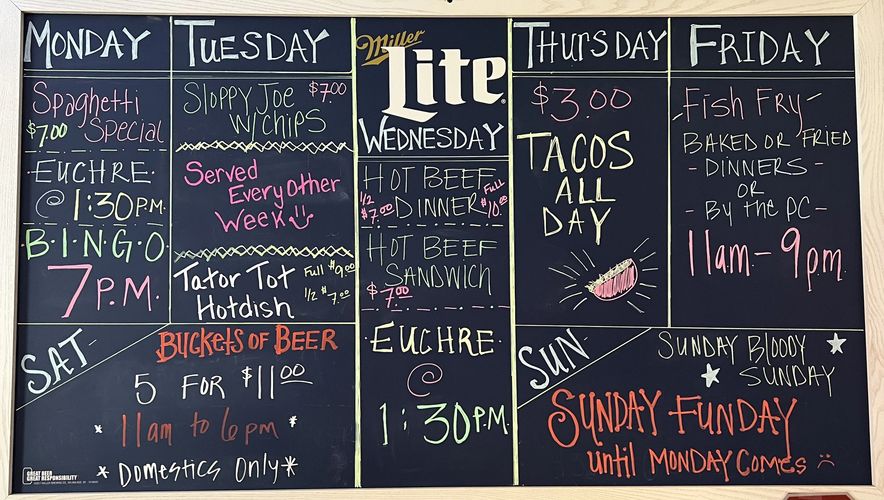 MONDAY
Spaghetti
$7.00 Special
EUCHRE
@ 1:30 P.M.
B·I·N·G·O
7 P.M.
TUESDAY
SLOPPY JOE $7.00
W/CHIPS
Served
Every other
Week
Tator Tot Full $9.00
Hotdish ½ $7.00
Miller
Lite
WEDNESDAY
HOT BEEF
½ $7.00 DINNER Full $10.00
HOT BEEF
SANDWICH
$7.00
EUCHRE
@
1:30 P.M.
THURSDAY
$3.00
TACOS
ALL
DAY
FRIDAY
Fish Fry
BAKED OR FRIED
- DINNERS -
OR
- By the PC -
11am - 9pm
SAT
BUCKETS OF BEER
5 FOR $11.00
* 11am to 6pm *
* Domestics Only *
GREAT BEER
GREAT RESPONSIBILITY
SUN
SUNDAY BLOODY
SUNDAY
SUNDAY FUNDAY
until MONDAY COMES